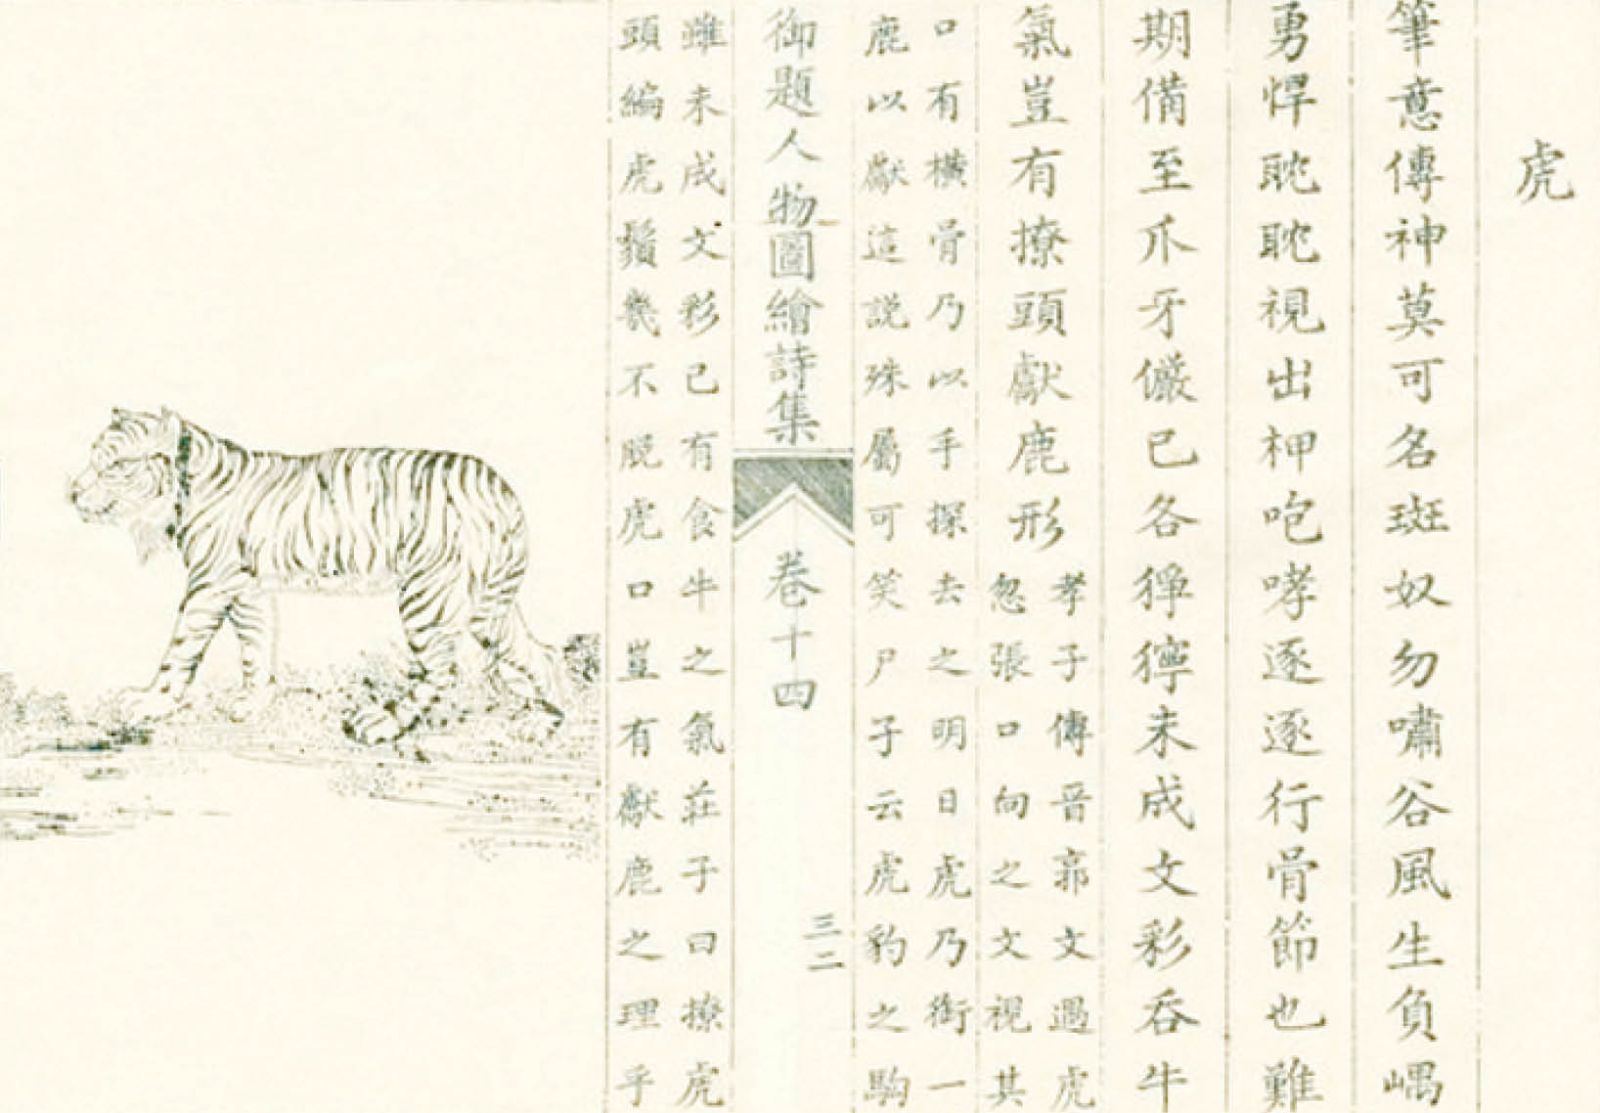 虎
筆意傳神莫可名斑奴勿嘯谷風生負嵎
勇悍眈眈視出柙咆哮逐逐行骨節也難
期備至爪牙儼已各猙獰未成文彩吞牛
氣豈有撩頭獻鹿形
孝子傳晉郭文過虎
忽張口向之文視其
口有橫骨乃以手探去之明日虎乃銜一
鹿以獻這説殊屬可笑尸子云虎豹之駒
御題人物圖繪詩集
卷十四
三二
雖未成文彩已有食牛之氣莊子曰撩虎
頭編虎鬚幾不脫虎口豈有獻鹿之理乎